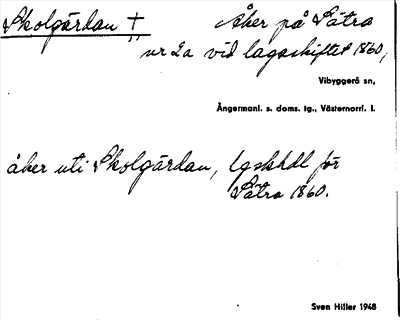 Skolgärdan † Åker på Sätra
nr 2a vid lagaskiftet 1860,
Vibyggerå sn,
Ångermanl. s. doms. tg., Västernorrl. l.
åker uti Skolgärdan, Lgskhdl för
Sätra 1860.
Sven Hiller 1948